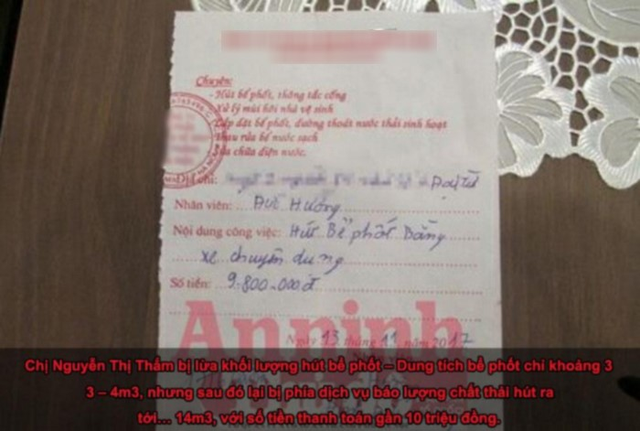 Chuyên:
- Hút bể phốt, thông tắc cống
Xử lý mùi hôi nhà vệ sinh
Lắp đặt bể phốt, đường thoát nước thải sinh hoạt
Thau rửa bể nước sạch
Sửa chữa điện nước.
Địa chỉ:
Nhân viên: Đức Hướng
Nội dung công việc: Hút Bể phốt Bằng
xe chuyên dụng
Số tiền: 9.800.000đ
An ninh
Ngày 13 tháng 11 năm 2017
Chị Nguyễn Thị Thắm bị lừa khối lượng hút bể phốt – Dung tích bể phốt chỉ khoảng 3
3 – 4m3, nhưng sau đó lại bị phía dịch vụ báo lượng chất thải hút ra
tới... 14m3, với số tiền thanh toán gần 10 triệu đồng.